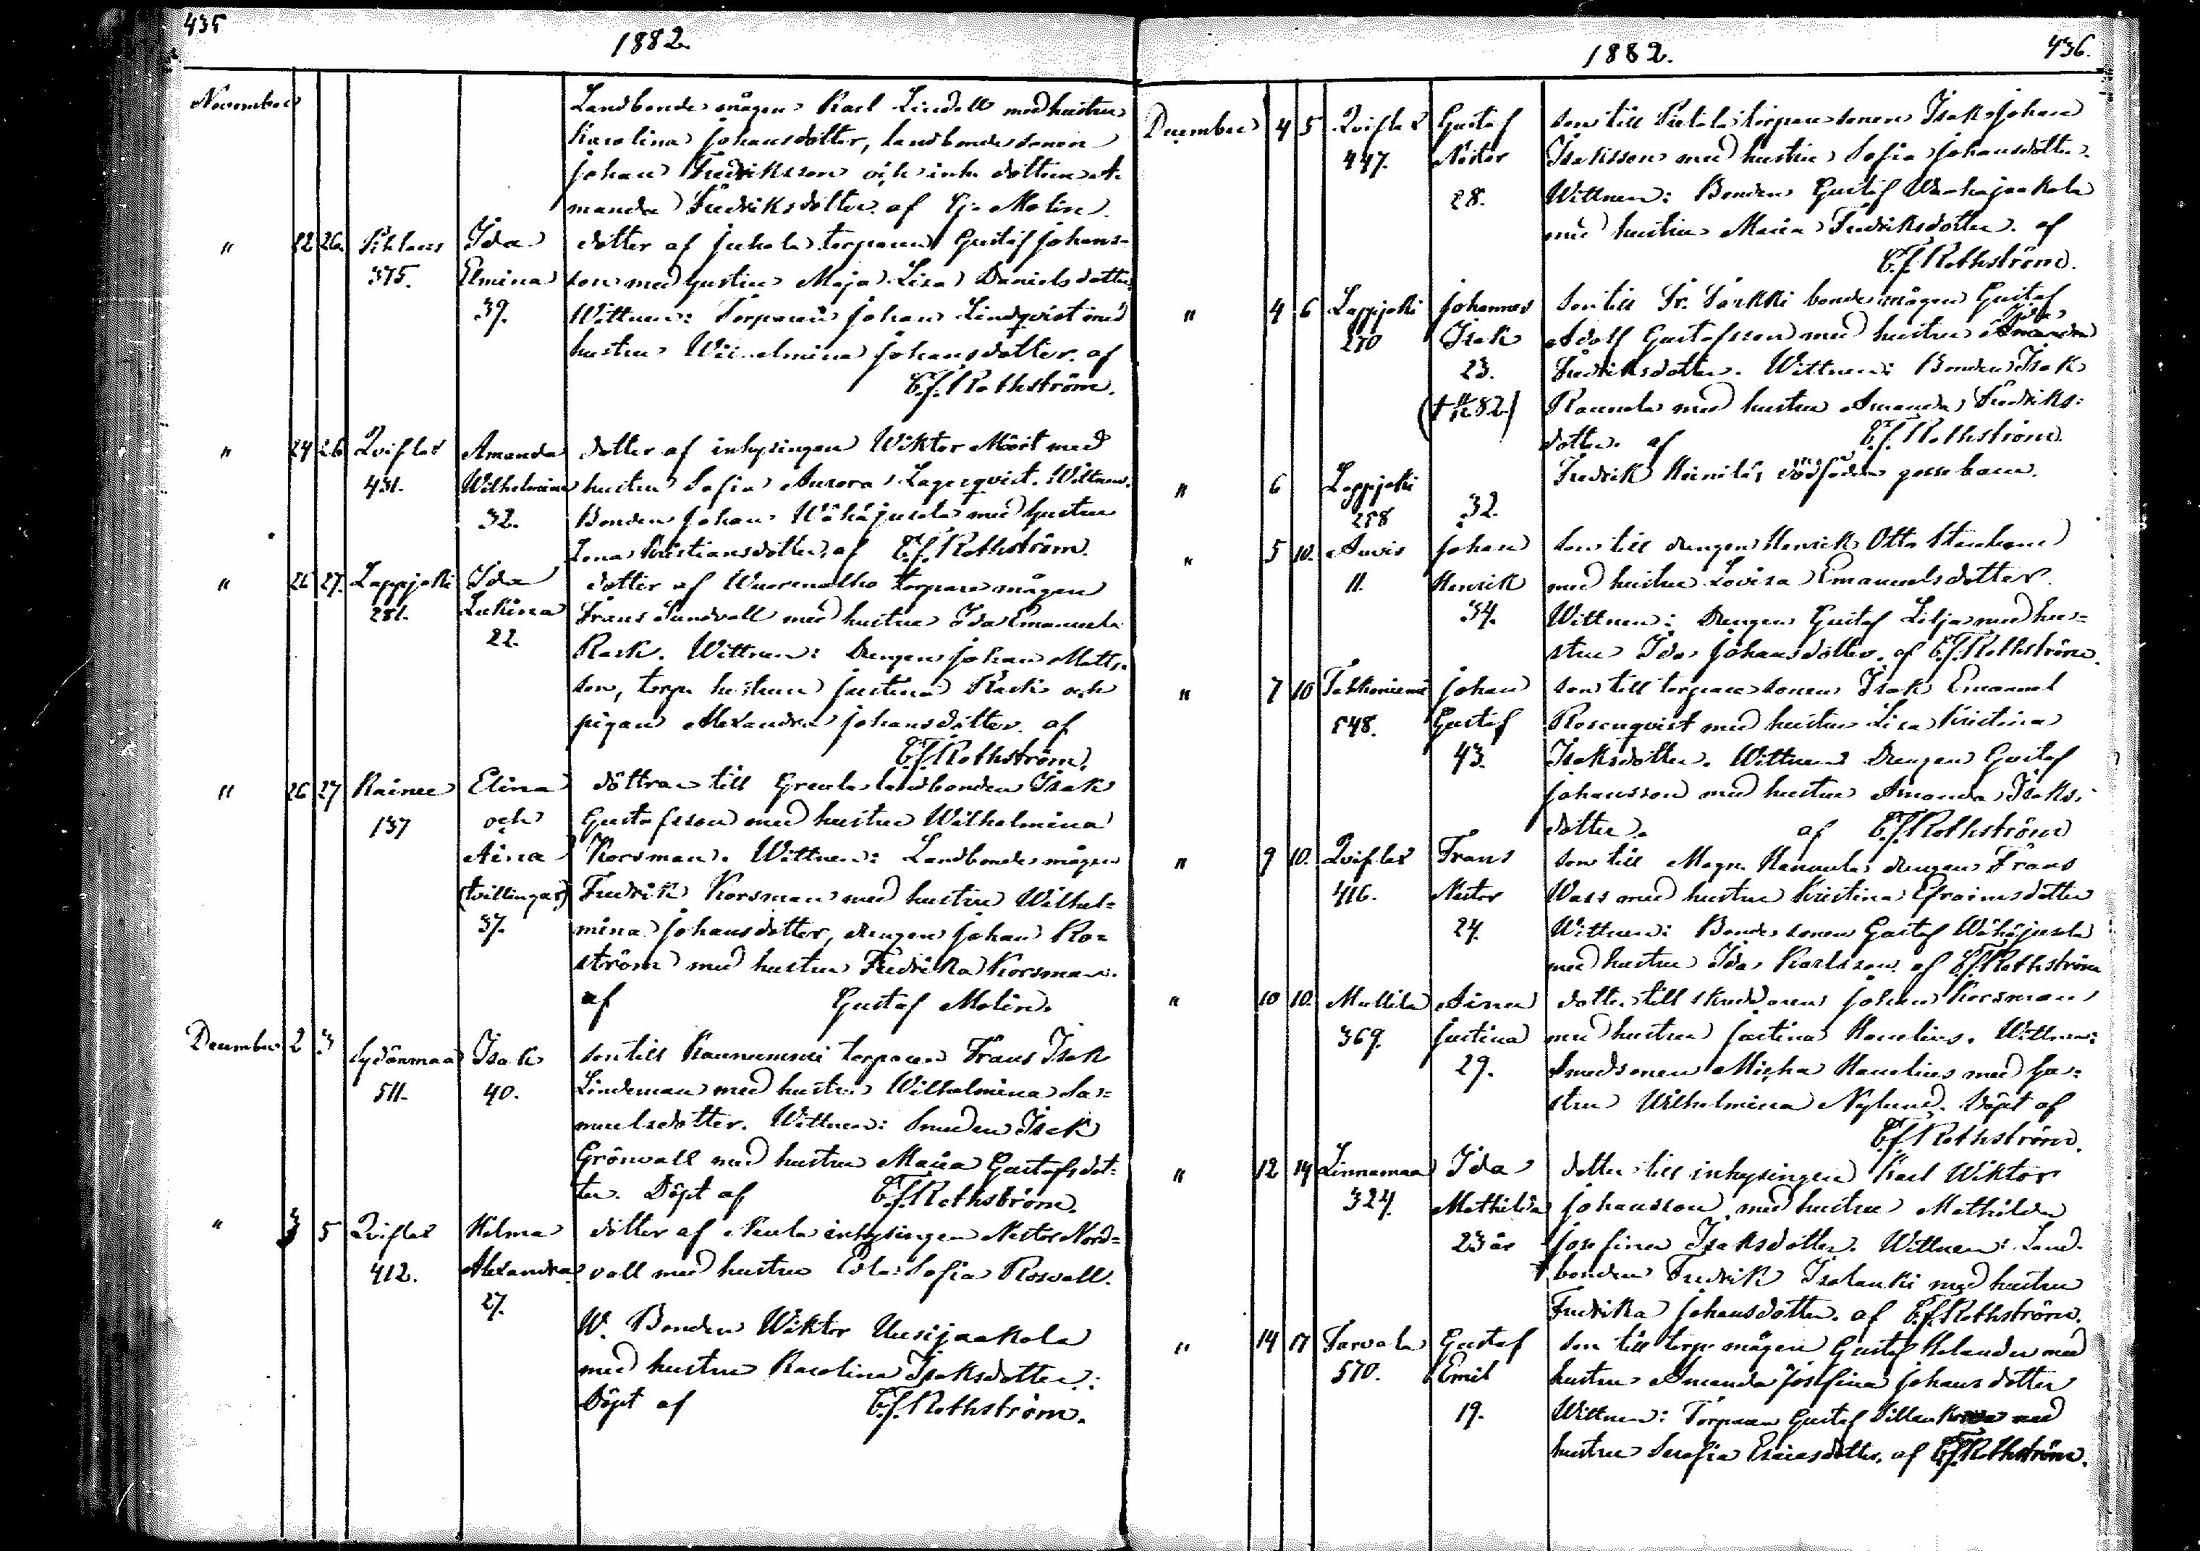 435
1882.
November
Landbonde mågen Karl Lindell med hustru
Karolina Johansdotter, landbondesonen
Johan Fredriksson och inh. dottren A-
manda Fredriksdotter. af G. Molin.
" 22 26. Ida dotter af Juhola torparen Gustaf Johans-
375. Elmina son med hustru Maja Lisa Daniels dotter.
39. Wittnen: Torparen Johan Lindqvist med
hustru Wilhelmina Johansdotter. af
E.J. Rothström.
" 24 26 Qviflax Amanda dotter af inhysingen Wiktor Mört med
431. Wilhelmina hustru Sofia Aurora Lagerqvist. Wittnen.
32. Bonden Johan Wähäjusola med hustru
Lena Kristiansdotter, af E.J. Rothström.
" 26 27. Lappjoki Ida dotter af Wuorenalho torpare mågen
281. Lukina Frans Sundvall med hustru Ida Emanuela
22. Rask. Wittnen: Drengen Johan Matts-
son, torp. hustrun Justina Rask och
pigan Alexandra Johansdotter. af
E.J. Rothström.
" 26 27 Kainu Elina döttrar till Greula landbonden Isak
137 och Gustafsson med hustru Wilhelmina
Aina Korsman. Wittnen: Landbonde mågen
(tvillingar) Fredrik Korsman med hustru Wilhel-
37. mina Johansdotter, drengen Johan Ro-
ström med hustru Fredrika Korsman.
af Gustaf Molin.
December 2 3 Sydänmaa Isak son till Kaunummi torparen Frans Isak
511. 40. Lindeman med hustru Wilhelmina Sa-
muelsdotter. Wittnen: Smeden Isak
Grönvall med hustru Maria Gustafsdot-
ter. Döpt af E.J. Rothström.
" 3 5 Qviflax Hilma dotter af Neula inhysingen Nestor Nord-
412. Alexandra vall med hustru Eva Sofia Rosvall.
27.
W. Bonden Wiktor Uusijaakola
med hustru Karolina Isaksdotter:
Döpt af E.J. Rothström.
436.
1882.
December 4 5 Qviflax Gustaf son till Pietila torpare sonen Isak Johan
447. Nestor Isaksson med hustru Sofia Johansdotter.
28. Wittnen: Bonden Gustaf Wanhajaakola
med hustru Maria Fredriksdotter. af
E.J. Rothström.
" 4 6 Lappjoki Johannes Son till Sr. Sarkki bonde mågen Gustaf
270 Isak Adolf Gustafsson med hustru Amanda
23. Fredriksdotter. Wittnen: Bonden Isak
Rannela med hustru Amanda Fredriks-
dotter. af E.J. Rothström.
" 6 Lappjoki Fredrik Heinilä, dödfödda gossebarn.
258 32.
" 5 10. Auvis Johan Son till drengen Henrik Otto Stenlund
11. Henrik med hustru Lovisa Emanuelsdotter.
34. Wittnen: Drengen Gustaf Lilja med hu-
stru Ida Johansdotter. af E.J. Rothström.
" 7 10 Johan son till torpare sonen Isak Emanuel
548. Gustaf Rosenqvist med hustru Lisa Kristina
43. Isaksdotter. Wittnen Drengen Gustaf
Johansson med hustru Amanda Isaks-
dotter. af E.J. Rothström
" 9 10. Qviflax Frans son till Magn. Hannula drengen Frans
416. Nestor Wass med hustru Kristina Efraimsdotter
24. Wittnen: Bonde sonen Gustaf Wähäjusola
med hustru Ida Karlsson. af E.J. Rothström
" 10 10. Mullila Aina dotter till skräddaren Johan Korsman
369. Justina med hustru Justina Hamelius. Wittnen:
29. Smedsonen Micha Hamelius med hu-
stru Wilhelmina Nylund. Döpt af
E.J. Rothström.
" 12 14 Linnamaa Ida dotter till inhysingen Karl Wiktor
324. Mathilda Johansson med hustru Mathilda
23 år Josefina Isaksdotter. Wittnen: Land-
bonden Fredrik Isolauki med hustru
Fredrika Johansdotter. af E.J. Rothström.
" 14 17 Tarvola Gustaf son till torp. mågen Gustaf Helander med
570. Emil hustru Amanda Josefina Johansdotter
19. Wittnen: Torparen Gustaf med
hustru Serafia Esaiasdotter, af E.J. Rothström.